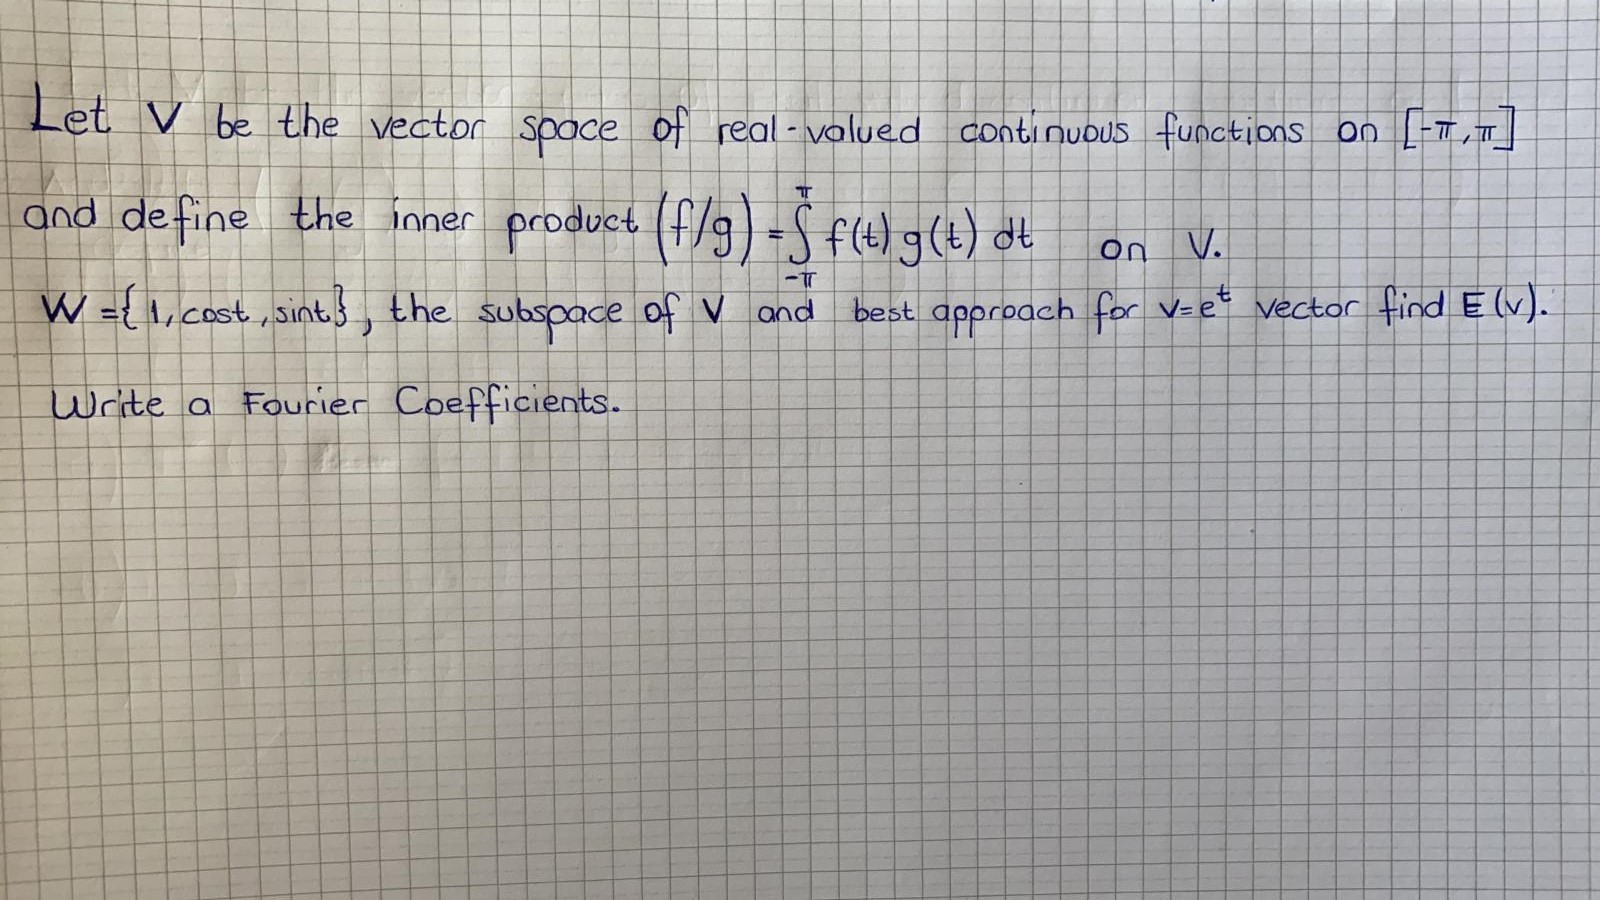 Let V be the vector space of real-valued continuous functions on [-π, π]
and define the inner product (f/g) = ∫_{-π}^{π} f(t) g(t) dt on V.
W = {1, cost, sint}, the subspace of V and best approach for v=e^t vector find E(v).
Write a Fourier Coefficients.